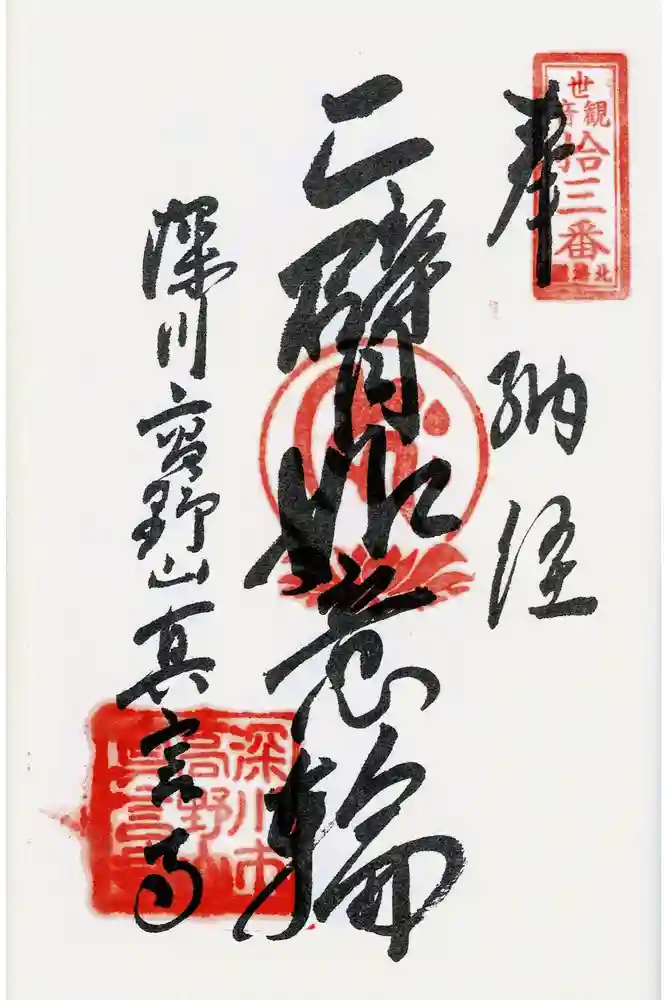 観世音
拾三番
北海道
奉納経
二臂如意輪
深川高野山真言寺
深川市
高野山
真言寺